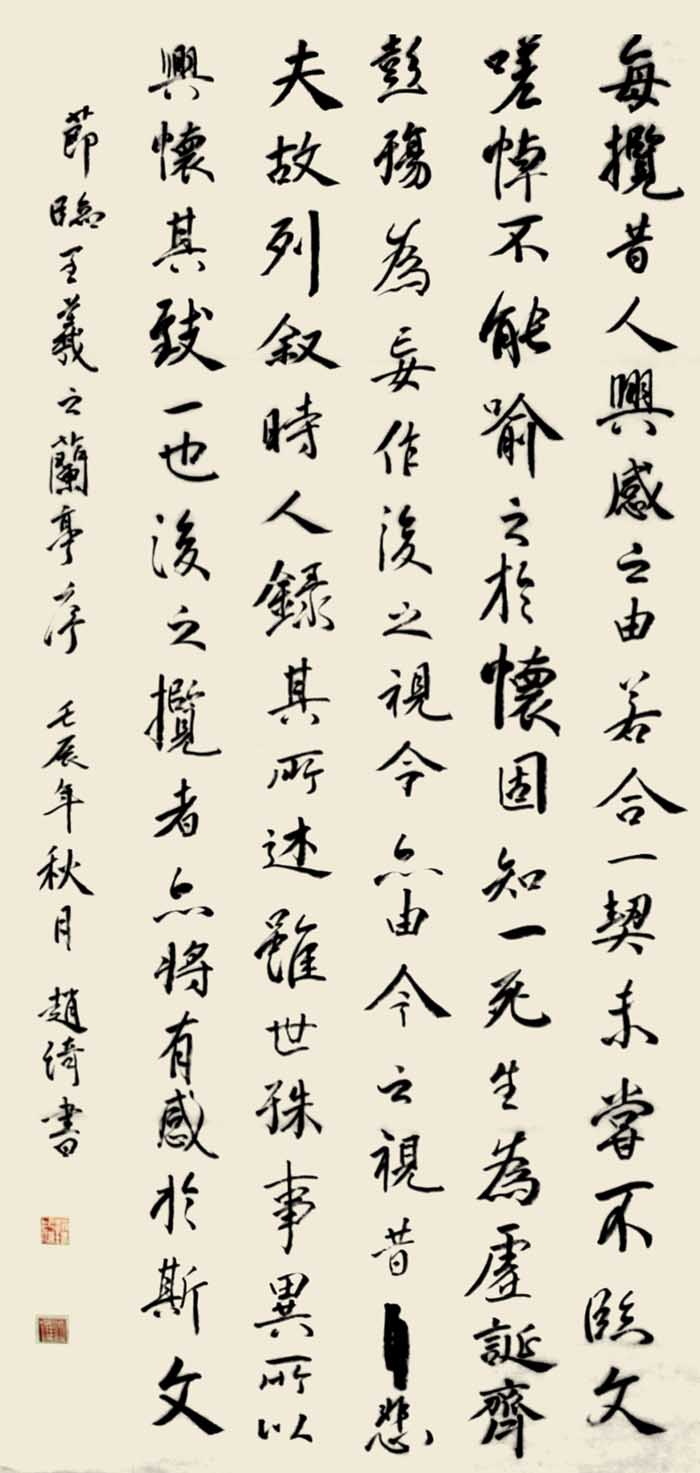 每攬昔人興感之由若合一契未嘗不臨文
嗟悼不能喻之於懷固知一死生為虛誕齊
彭殤為妄作後之視今亦由今之視昔悲
夫故列叙時人錄其所述雖世殊事異所以
興懷其致一也後之攬者亦將有感於斯文
節臨王羲之蘭亭序 壬辰年秋月 趙綺書